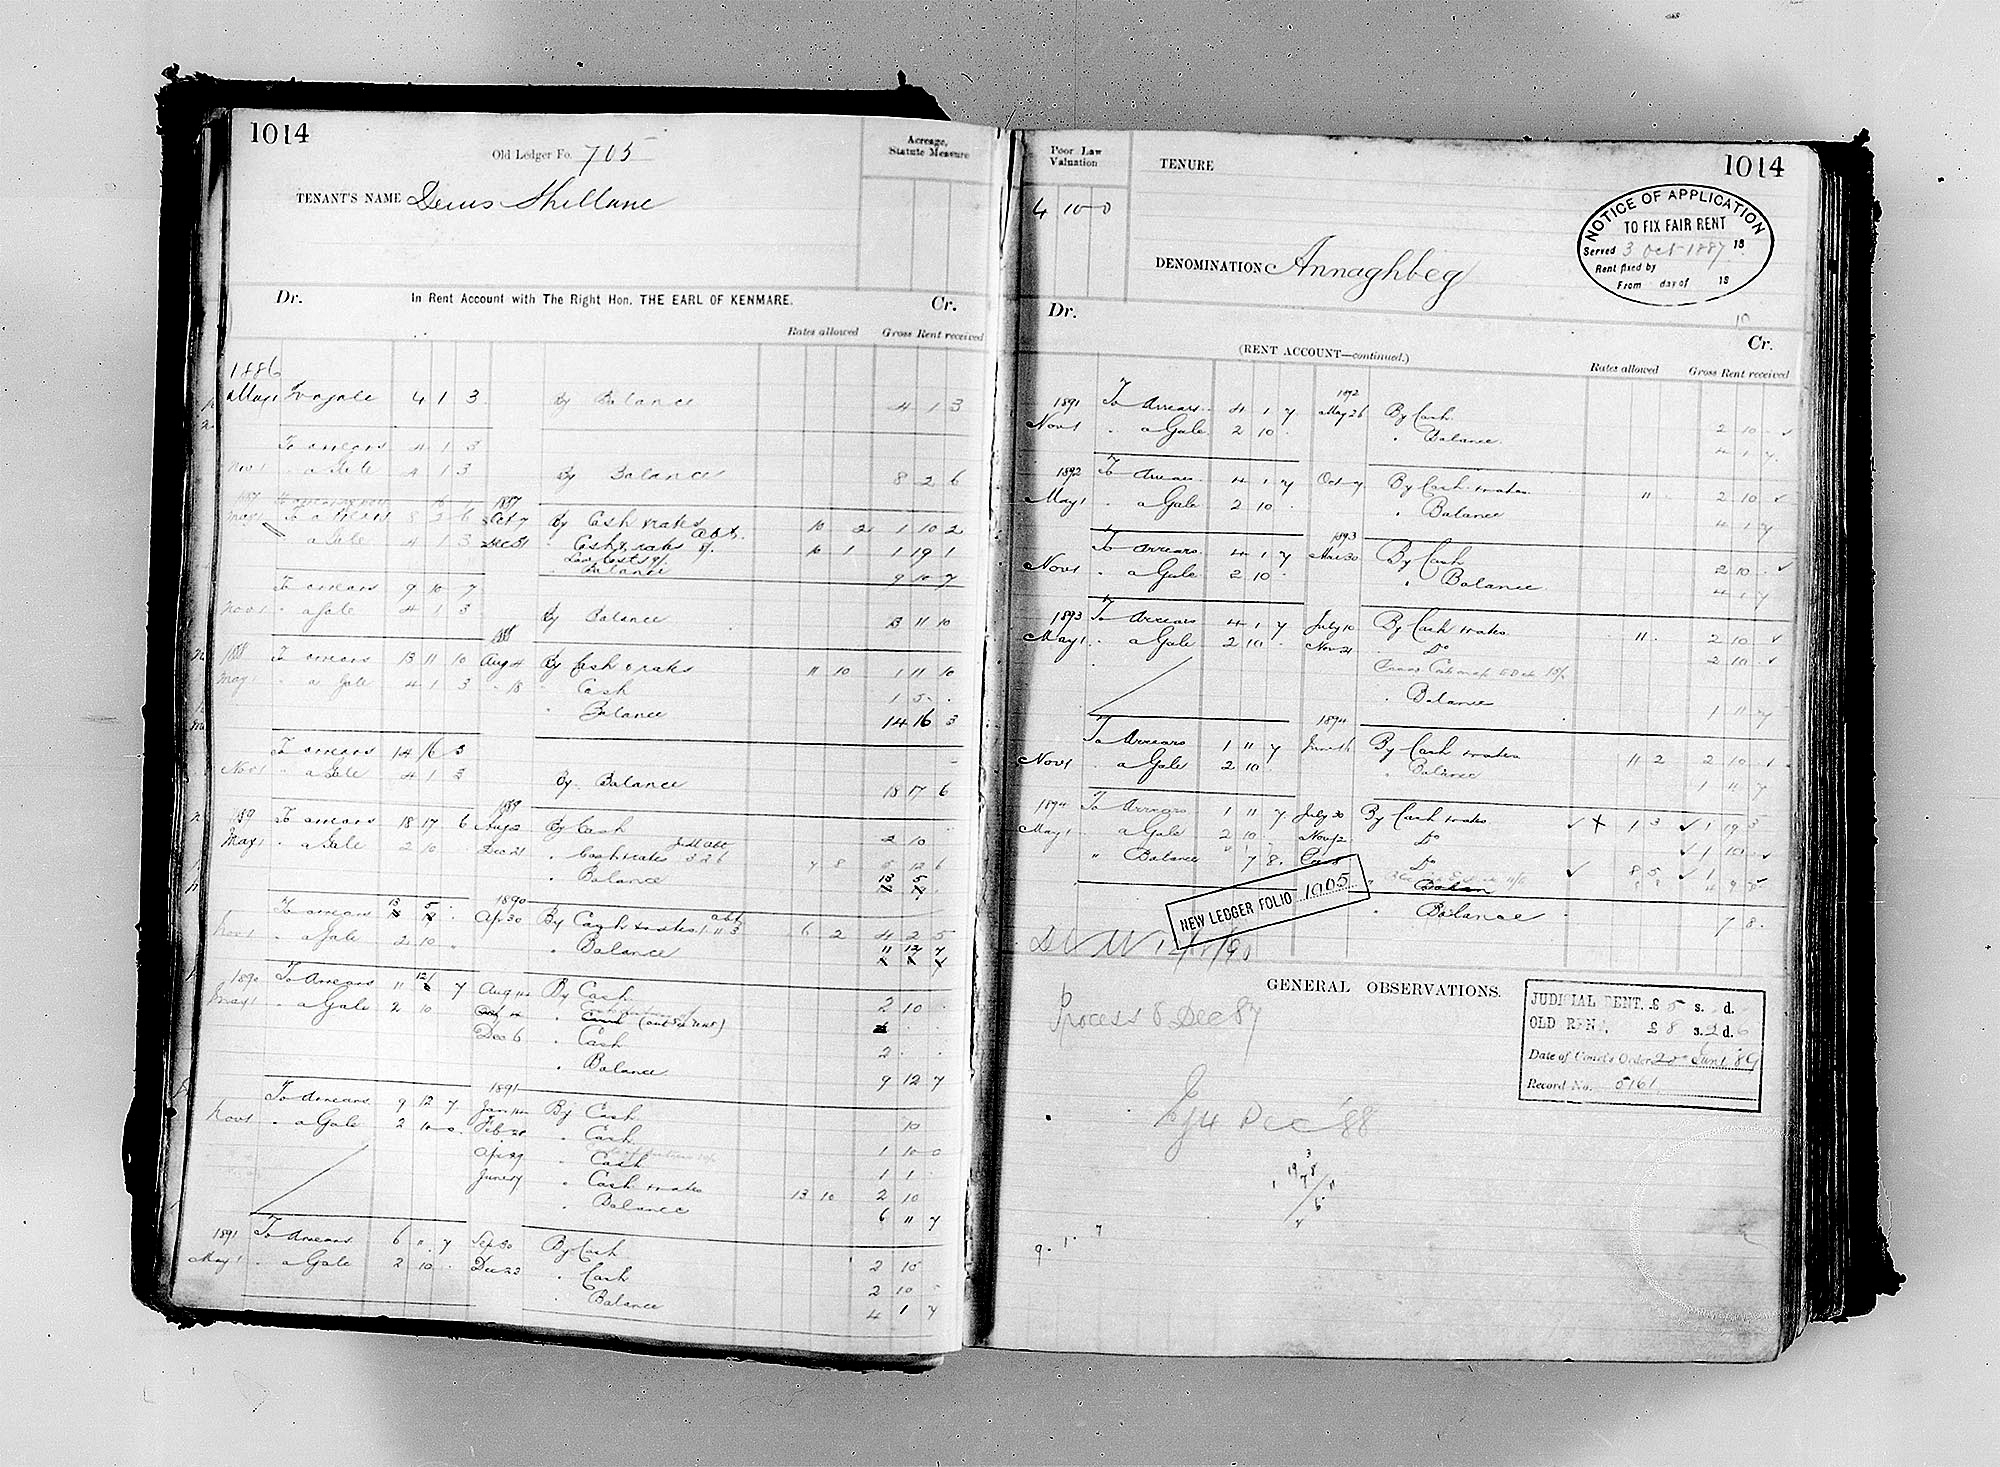 1014
Old Ledger Fo. 705
Acreage, Statute Measure
TENANT'S NAME Denis Shellane
Dr. In Rent Account with The Right Hon. THE EARL OF KENMARE. Cr.
Rates allowed Gross Rent received
1886
May 1 To a gale 4 1 3 By Balance 4 1 3
To arrears 4 1 3
Nov 1 " a Gale 4 1 3 By Balance 8 2 6
1887 1887
May 1 To arrears 8 2 6 Oct 7 By Cash & rates 10 2 1 10 2
" a Gale 4 1 3 Dec 31 " Cash & rates 10 1 1 19 1
Law Costs
" Balance 9 10 7
To arrears 9 10 7
Nov 1 " a Gale 4 1 3 By Balance 13 11 10
1888 1888
To arrears 13 11 10 Aug 4 By Cash & rates 11 10 1 11 10
May 1 " a Gale 4 1 3 " 18 " Cash 1 5 .
" Balance 14 16 3
To arrears 14 16 3
Nov 1 " a Gale 4 1 3 By Balance 18 17 6
1889 1889
To arrears 18 17 6 Aug 2 By Cash 2 10
May 1 " a Gale 2 10 . Dec 21 " Cash & rates Judl abt 3 2 6 7 8 5 12 6
" Balance 13 5
1890
To arrears 13 5 . Ap 30 By Cash & rates abt 1 11 3 6 2 4 2 5
Nov 1 " a Gale 2 10 " " Balance 11 12 7
1890 To Arrears 11 12 7 Aug By Cash 2 10
May 1 " a Gale 2 10 " Cash
Dec 6 " Cash 2 . .
" Balance 9 12 7
1891
To Arrears 9 12 7 Jan By Cash 10
Nov 1 " a Gale 2 10 0 Feb " Cash 1 10 0
Apr 29 " Cash 1 1 .
June 17 " Cash & rates 13 10 2 10
" Balance 6 11 7
1891 To Arrears 6 11 7 Sep 30 By Cash 2 10
May 1 " a Gale 2 10 . Dec 23 " Cash 2 10
" Balance 4 1 7
Poor Law Valuation
TENURE
1014
4 10 0
NOTICE OF APPLICATION
TO FIX FAIR RENT
Served 3 Oct 1887 18
Rent fixed by
From day of 18
DENOMINATION Annaghbeg
Dr. Cr.
(RENT ACCOUNT—continued.)
Rates allowed Gross Rent received
1892
1891 To Arrears 4 1 7 May 26 By Cash 2 10 .
Nov 1 " a Gale 2 10 . " Balance 4 1 7
1892 To Arrears 4 1 7 Oct 7 By Cash & rates 11 2 10
May 1 " a Gale 2 10 . " Balance 4 1 7
1893
To Arrears 4 1 7 Mar 30 By Cash 2 10 .
Nov 1 " a Gale 2 10 . " Balance 4 1 7
1893 To Arrears 4 1 7 July 10 By Cash & rates 11 . 2 10
May 1 " a Gale 2 10 . Nov 21 " Do 2 10
" Balance 1 11 7
1894
To Arrears 1 11 7 June By Cash & rates 11 2 2 10
Nov 1 " a Gale 2 10 . " Balance 1 11 7
1894 To Arrears 1 11 7 July 30 By Cash & rates 1 3 1 19 3
May 1 " a Gale 2 10 . Nov 12 " Do 1 10
" Balance 7 8 Do 8 5 1
" Balance 7 8
NEW LEDGER FOLIO 1005
GENERAL OBSERVATIONS.
JUDICIAL RENT. £ 5 s. d.
OLD RENT. £ 8 s. 2 d. 6
Date of Court's Order 20 Sept. 89
Record No. 5161
Process 8 Dec 87
Ej 4 Dec '88
9. 1. 7